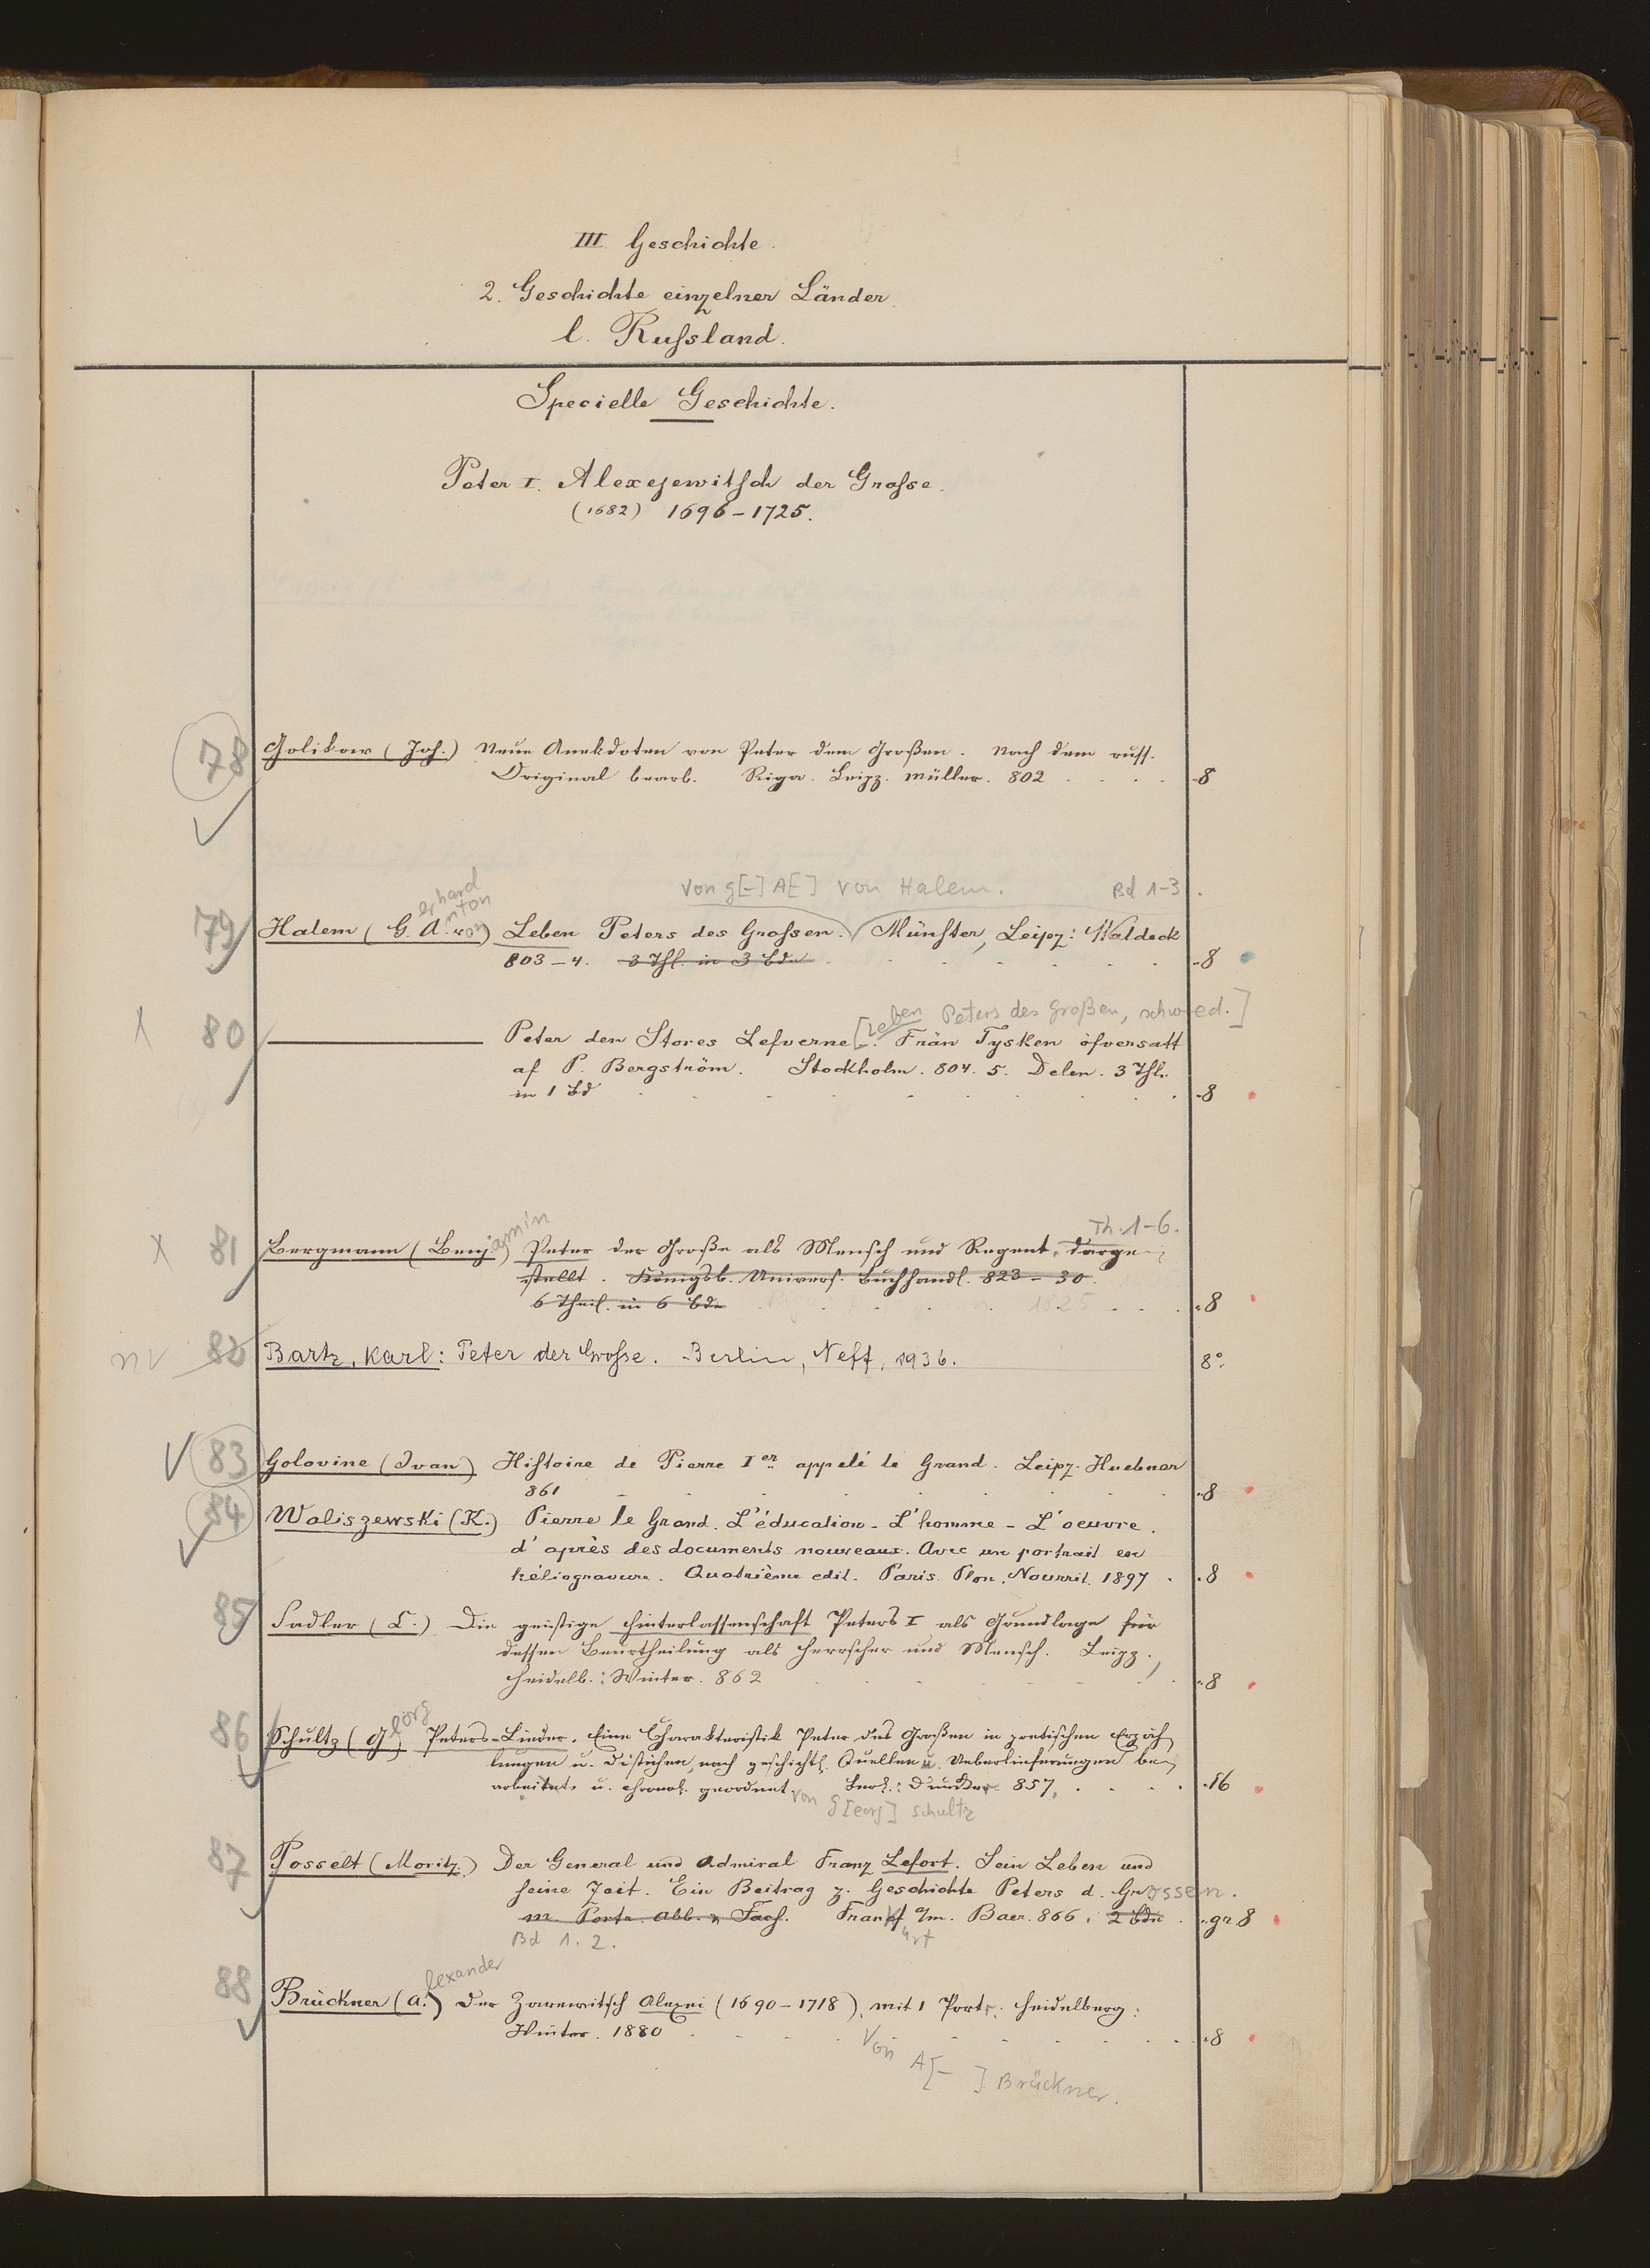 III. Geschichte.
2. Geschichte einzelner Länder.
l. Russland.
Specielle Geschichte.
Peter I. Alexejewitsch der Grosse.
(1682) 1696-1725.
78 Golikow (Joh.) Neue Anekdoten von Peter dem Großen. Nach dem russ.
Original bearb. Riga. Leipz. Müller. 802 . . . . 8
von G[-] A[-] von Halem. Bd 1-3.
erhard nton
79 Halem (G. A. von) Leben Peters des Grossen. Münster, Leipz: Waldeck
803-4. 3 Thl. in 3 Bdn . . . . . 8
[Leben Peters des Großen, schwed.]
X 80 ——— Peter den Stores Lefverne. Från Tysken öfversatt
af P. Bergström. Stockholm. 804. 5. Delen. 3 Thle
in 1 Bd . . . . . 8
Th. 1-6.
X 81 Bergmann (Benjamin) Peter der Große als Mensch und Regent, darge-
stellt. Königsb. Univers. Buchhandl. 823-30.
6 Theil. in 6 Bdn 1825 . . . 8
nv 82 Bartz, Karl: Peter der Grosse. Berlin, Neff, 1936. 8°
83 Golovine (Ivan) Histoire de Pierre Ier appelé le Grand. Leipz. Huebner
861 . . . . . 8
84 Waliszewski (K.) Pierre le Grand. L'éducation - L'homme - L'oeuvre.
d'après des documents nouveaux. Avec un portrait en
héliogravure. Quatrième edit. Paris. Plon. Nourrit. 1897 . 8
85 Sadler (C.) Die geistige Hinterlassenschaft Peters I als Grundlage für
dessen Beurtheilung als Herrscher und Mensch. Leipz.,
Heidelb.: Winter. 862 . . . . . 8
86 Schultz (Georg) Peters-Lieder. Eine Charakteristik Peter des Großen in poetischen Erzäh-
lungen u. Distichen, nach geschichtl. Quellen u. Ueberlieferungen be-
arbeitet u. chronol. geordnet. Berl.: Duncker 857. . . . . 16
von G[eorg] Schultz
87 Posselt (Moritz) Der General und Admiral Franz Lefort. Sein Leben und
seine Zeit. Ein Beitrag z. Geschichte Peters d. Grossen.
m. Portr. Abb. u. Facs. Frankfurt a/m. Baer. 866. 2 Bde . gr. 8
Bd 1. 2.
88 Brückner (Alexander) Der Zarewitsch Alexei (1690-1718), mit 1 Portr. Heidelberg:
Winter. 1880 . . . . . 8
Von A[- ] Brückner.